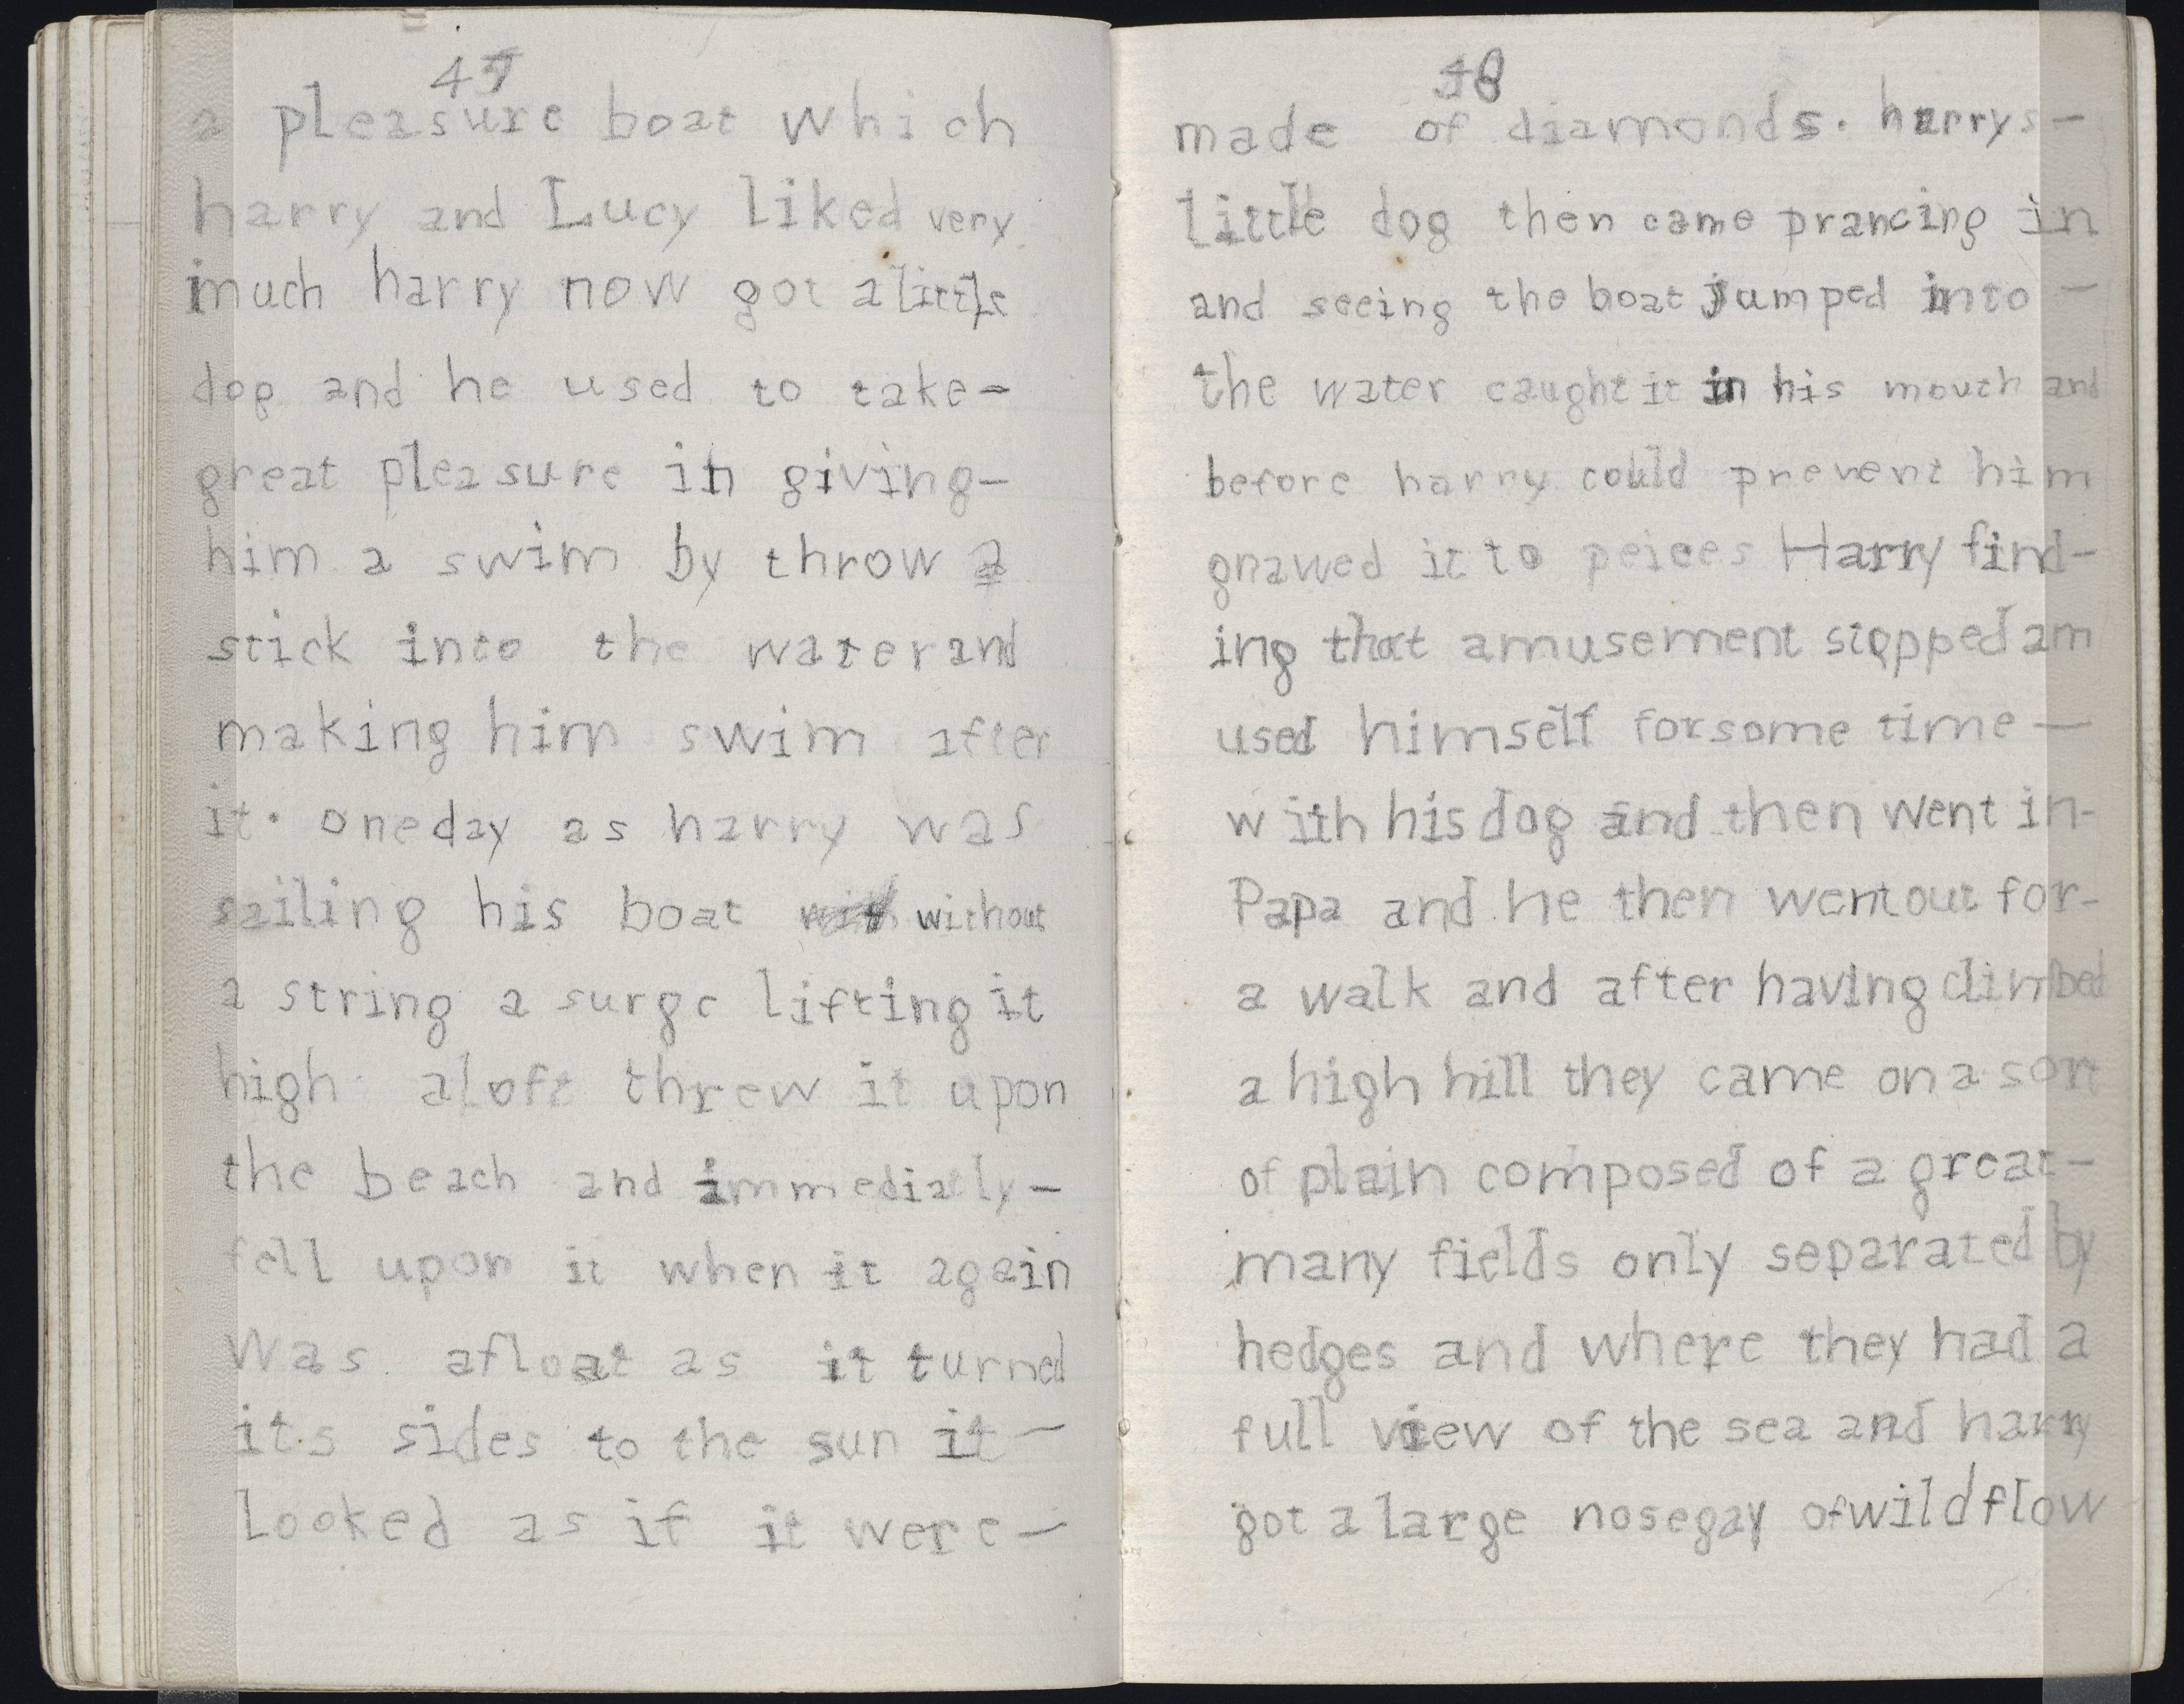 47
a pleasure boat which
harry and Lucy liked very
much harry now got a little
dog and he used to take-
great pleasure in giving-
him a swim by throw a
stick into the water and
making him swim after
it. one day as harry was
sailing his boat with without
a string a surge lifting it
high aloft threw it upon
the beach and immediatly-
fell upon it when it again
was afloat as it turned
its sides to the sun it-
looked as if it were-
48
made of diamonds. harrys-
little dog then came prancing in
and seeing the boat jumped into-
the water caught it in his mouth and
before harry could prevent him
gnawed it to peices Harry find-
ing that amusement stopped am
used himself for some time-
with his dog and then went in-
Papa and he then went out for-
a walk and after having climbed
a high hill they came on a sort
of plain composed of a great-
many fields only separated by
hedges and where they had a
full view of the sea and harry
got a large nosegay of wild flow